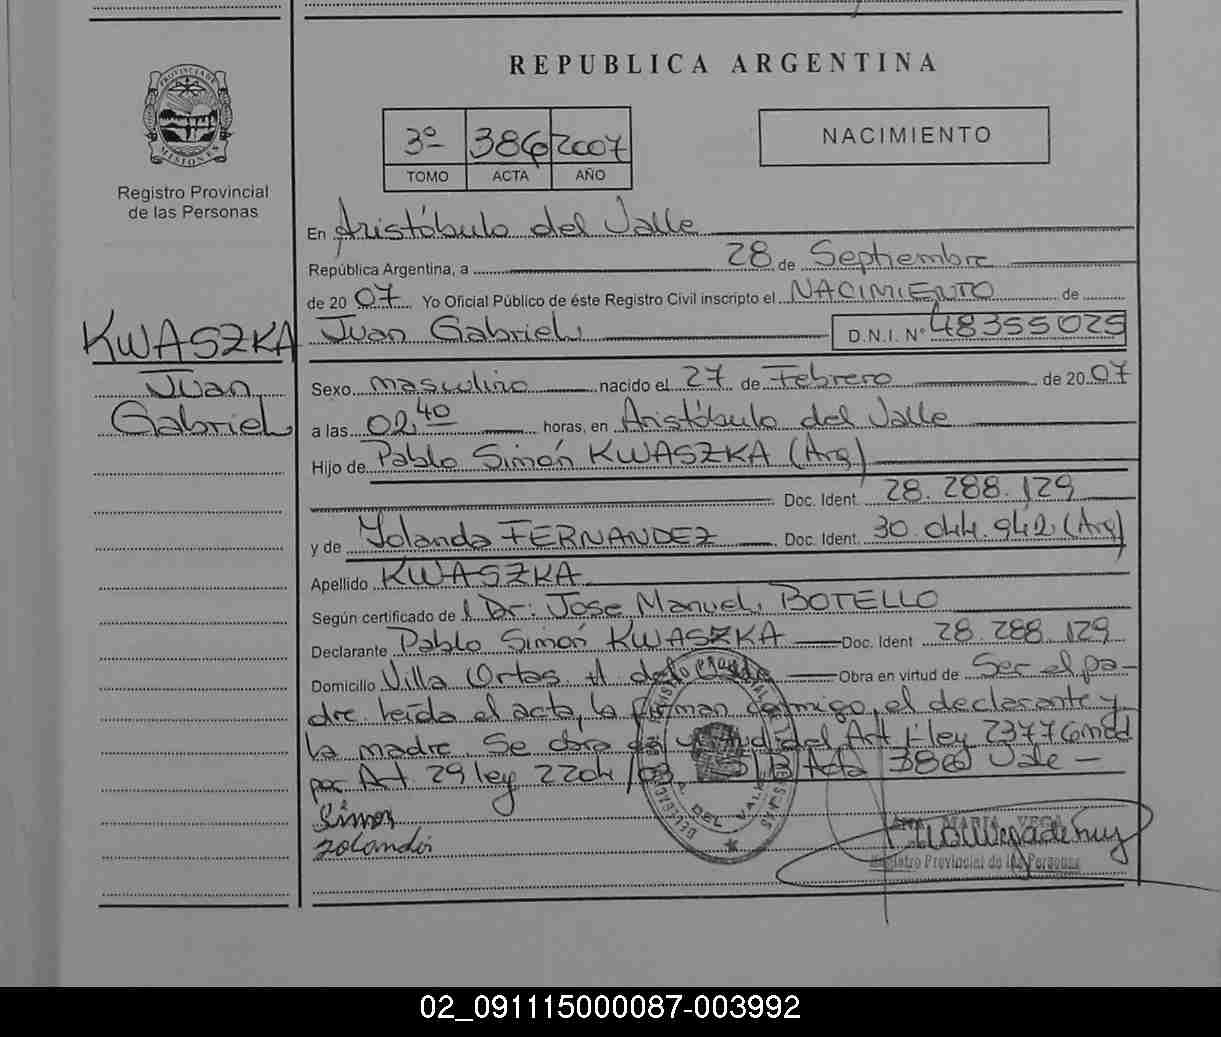 REPUBLICA ARGENTINA
PROVINCIA DE
MISIONES
Registro Provincial
de las Personas
3º 386 2007
TOMO ACTA AÑO
NACIMIENTO
KWASZKA
Juan
Gabriel
En Aristóbulo del Valle
República Argentina, a 28 de Septiembre
de 2007 Yo Oficial Público de éste Registro Civil inscripto el NACIMIENTO de
Juan Gabriel D.N.I. Nº 48355025
Sexo masculino nacido el 27 de Febrero de 2007
a las 02,40 horas, en Aristóbulo del Valle
Hijo de Pablo Simón KWASZKA (Arg)
Doc. Ident. 28.288.129
y de Yolanda FERNANDEZ Doc. Ident. 30.044.942 (Arg)
Apellido KWASZKA
Según certificado de Dr: Jose Manuel BOTELLO
Declarante Pablo Simón KWASZKA Doc. Ident 28.288.129
Domicilio Villa Ortas A del Valle Obra en virtud de Ser el pa-
dre leída el acta, la firman conmigo, el declarante y
la madre. Se obra de virtud del Art 1 ley 23776 mod
por Art. 29 ley 2204 Acta 386 Vale -
Simon
Yolanda
ANA MARIA VEGA
Registro Provincial de las Personas
DEL VALLE
02_091115000087-003992